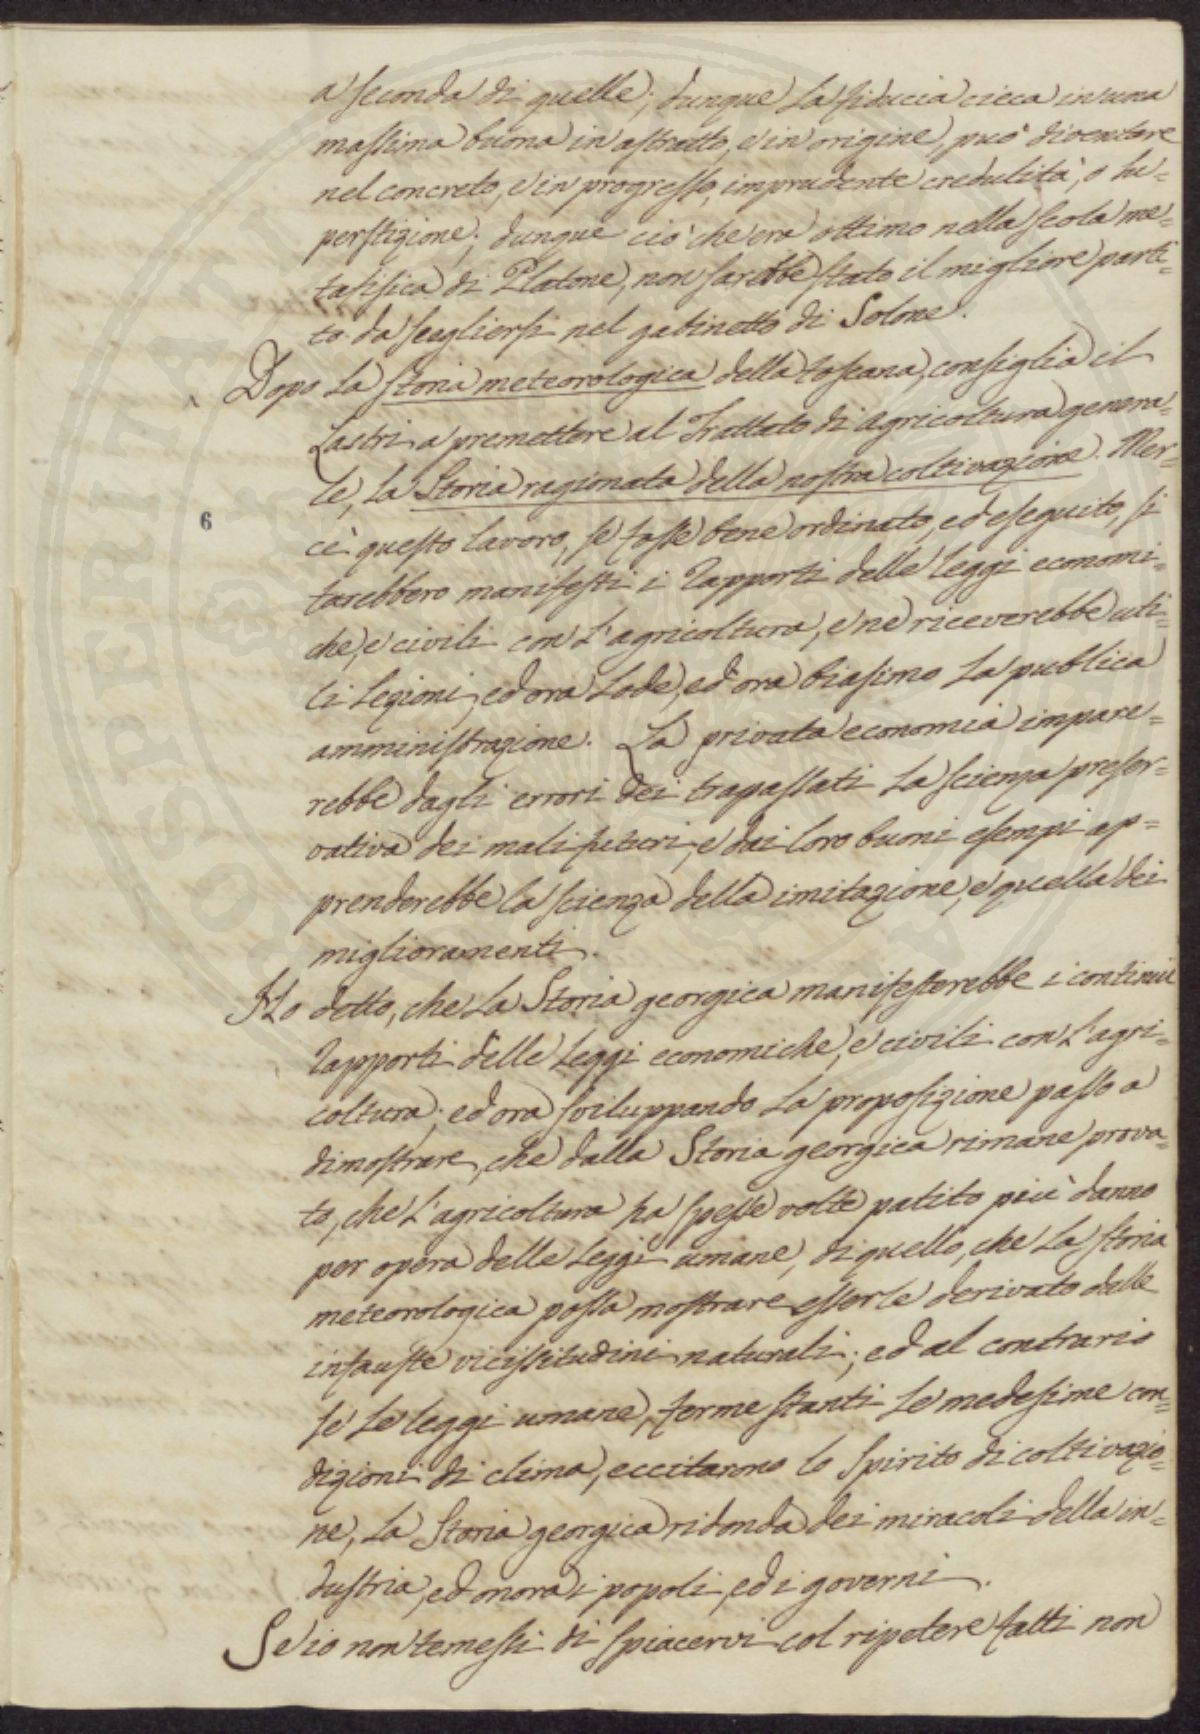 a seconda di quelle; dunque la fiducia cieca in una
massima buona in astratto, e in origine, può diventare
nel concreto, e in progresso, imprudente credulità, o su=
perstizione; dunque ciò che era ottimo nella scola me=
tafisica di Platone, non sarebbe stato il migliore parti=
to da scegliersi nel gabinetto di Solone.
Dopo la Storia meteorologica della Toscana, consiglia il
Lastri a premettere al Trattato di agricoltura genera=
le, la Storia ragionata della nostra coltivazione. Mer=
6
cè questo lavoro, se fosse bene ordinato, ed eseguito, si
farebbero manifesti i rapporti delle leggi economi=
che, e civili con l'agricoltura, e ne riceverebbe uti=
li lezioni, ed ora lode, ed ora biasimo la pubblica
amministrazione. La privata economia impare=
rebbe dagli errori dei trapassati la scienza preser=
vativa dei mali futuri, e dai loro buoni esempi ap=
prenderebbe la scienza della imitazione, e quella dei
miglioramenti.
Ho detto, che la Storia georgica manifesterebbe i continui
rapporti delle leggi economiche, e civili con l'agri=
coltura; ed ora sviluppando la proposizione passo a
dimostrare, che dalla Storia georgica rimane prova=
to, che l'agricoltura ha spesse volte patito più danno
per opera delle leggi umane, di quello, che la storia
meteorologica possa mostrare esserle derivato dalle
infauste vicissitudini naturali; ed al contrario
se le leggi umane, ferme stanti le medesime con=
dizioni di clima, eccitarono lo spirito di coltivazio=
ne, la Storia georgica ridonda dei miracoli della in=
dustria, ed onora i popoli, ed i governi.
Se io non temessi di spiacervi col ripetere fatti non